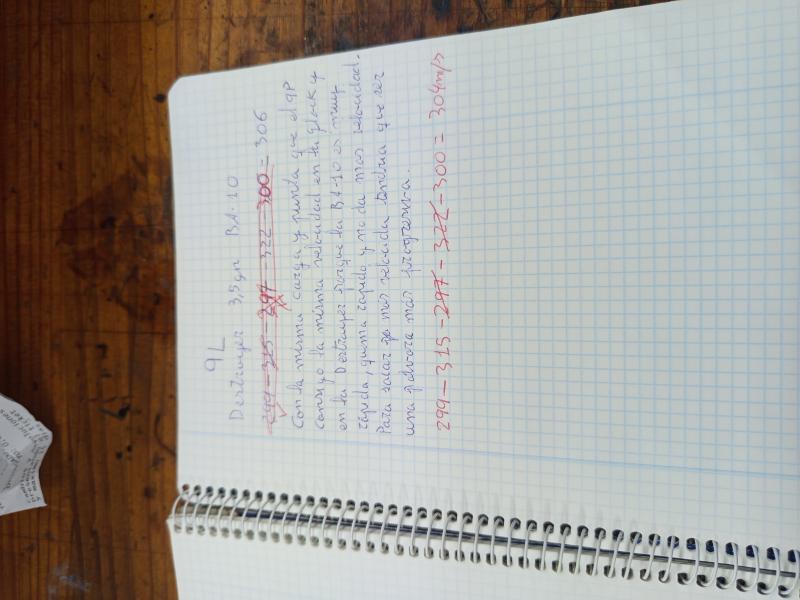 9L
Destroyer 3,5gn BA·10
299-315-297-322-300=306
Con la misma carga y punda que el 9P
consigo la misma velocidad en la glock y
en la Destroyer porque la BA·10 es muy
rapida, quema rapido y no da mas velocidad.
Para sacar mas velocida tendria que ser
una polvora mas progresiva.
299-315-297-322-300=304m/s